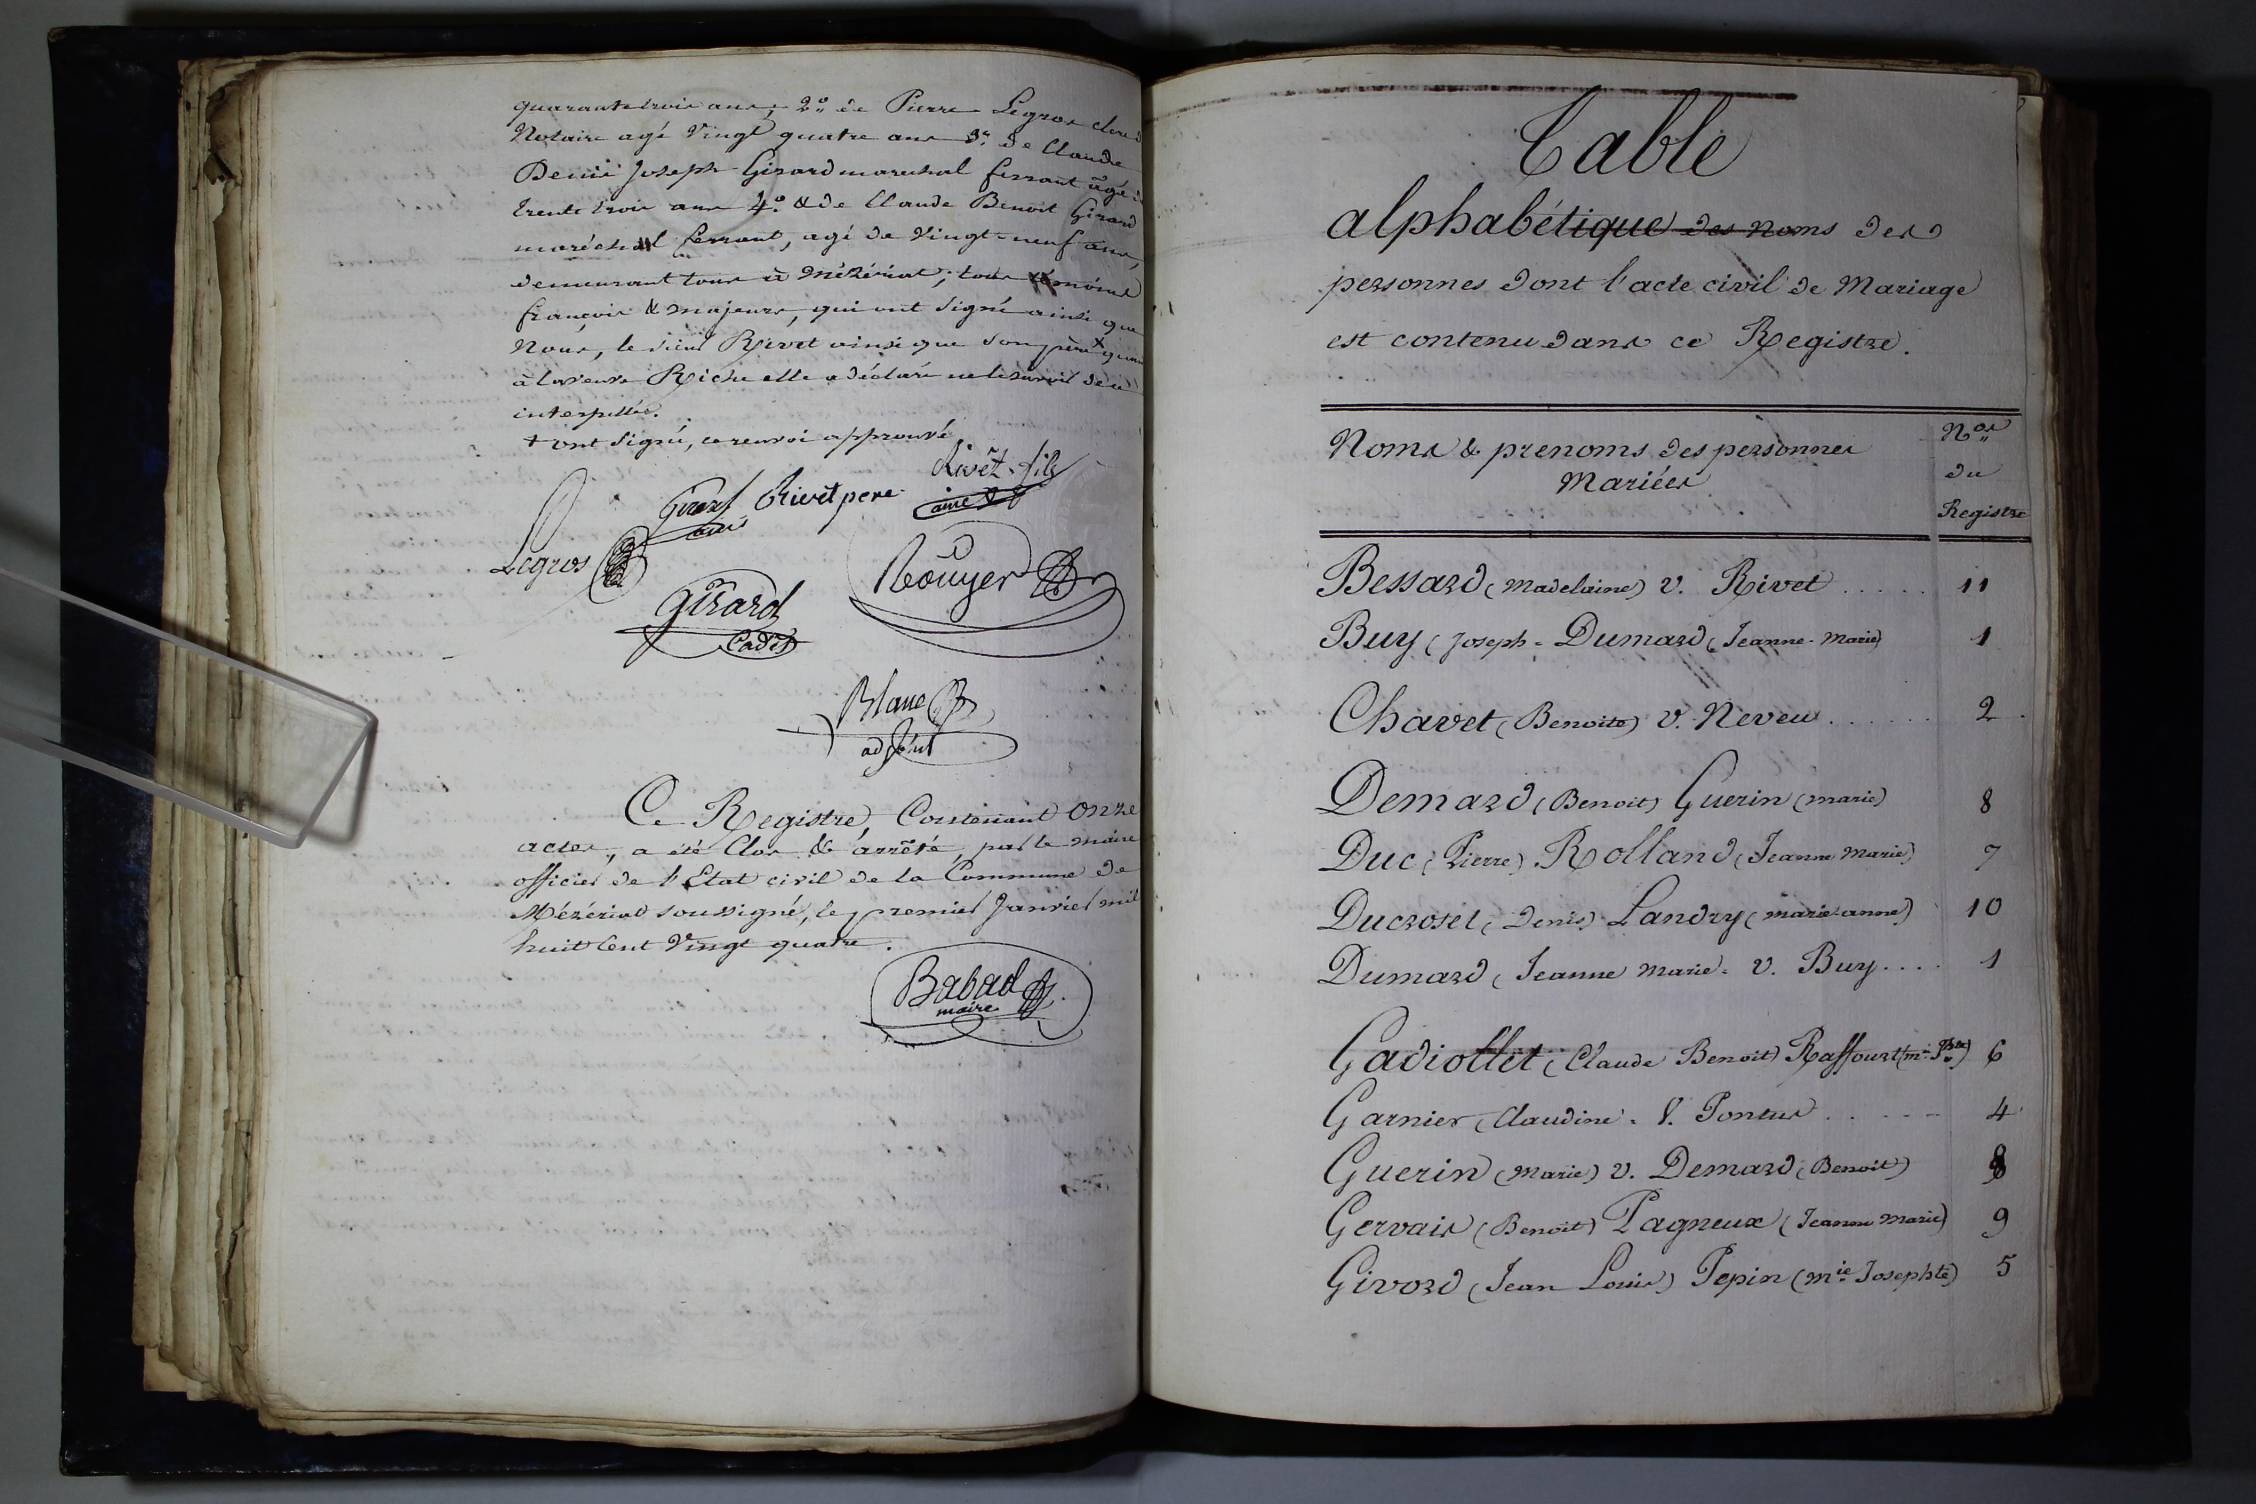 quarante trois ans, 2° de Pierre Legros clerc de
Notaire agé Vingt quatre ans 3° de Claude
Denis Joseph Girard marechal ferrant âgé de
trente trois ans 4° & de Claude Benoit Girard
maréchal ferrant, agé de Vingt-neuf ans,
demeurant tous à Mézériat; tous témoins
françois & majeurs, qui ont Signé ainsi que
Nous, le Sieur Rivet ainsi que Son père + quant
à la veuve Riche elle a déclaré ne le Savoir de ce
interpellée.
+ ont Signé, ce renvoi approuvé
Rivet fils
ainé
Rivet pere
Girard
ainé
Legros
Rouyer
Girard
Cadet
Blanc
adjoint
Ce Registre, Contenant onze
actes, a été Clos & arrêté, par le maire
officier de l'Etat civil de la Commune de
Mézériat soussigné, le premier Janvier mil
huit Cent Vingt quatre.
Babad
maire
Table
alphabétique des Noms des
personnes dont l'acte civil de Mariage
est contenu dans ce Registre.
Noms & prenoms des personnes
Mariées
Nos
du
Registre
Bessard (Madelaine) v. Rivet ..... 11
Buy (Joseph - Dumard (Jeanne-Marie) 1
Chavet (Benoite) v. Neveu ...... 2
Demard (Benoit) Guerin (marie) 8
Duc (Pierre) Rolland (Jeanne Marie) 7
Ducroset (Denis) Landry (marie anne) 10
Dumard (Jeanne Marie - v. Buy .... 1
Gadiollet (Claude Benoit) Raffourt (m. Bte) 6
Garnier (Claudine - V. Pontus ..... 4
Guerin (Marie) v. Demard (Benoit) 8
Gervais (Benoit) Pagneux (Jeanne Marie) 9
Givord (Jean Louis) Pepin (mie Josephte) 5